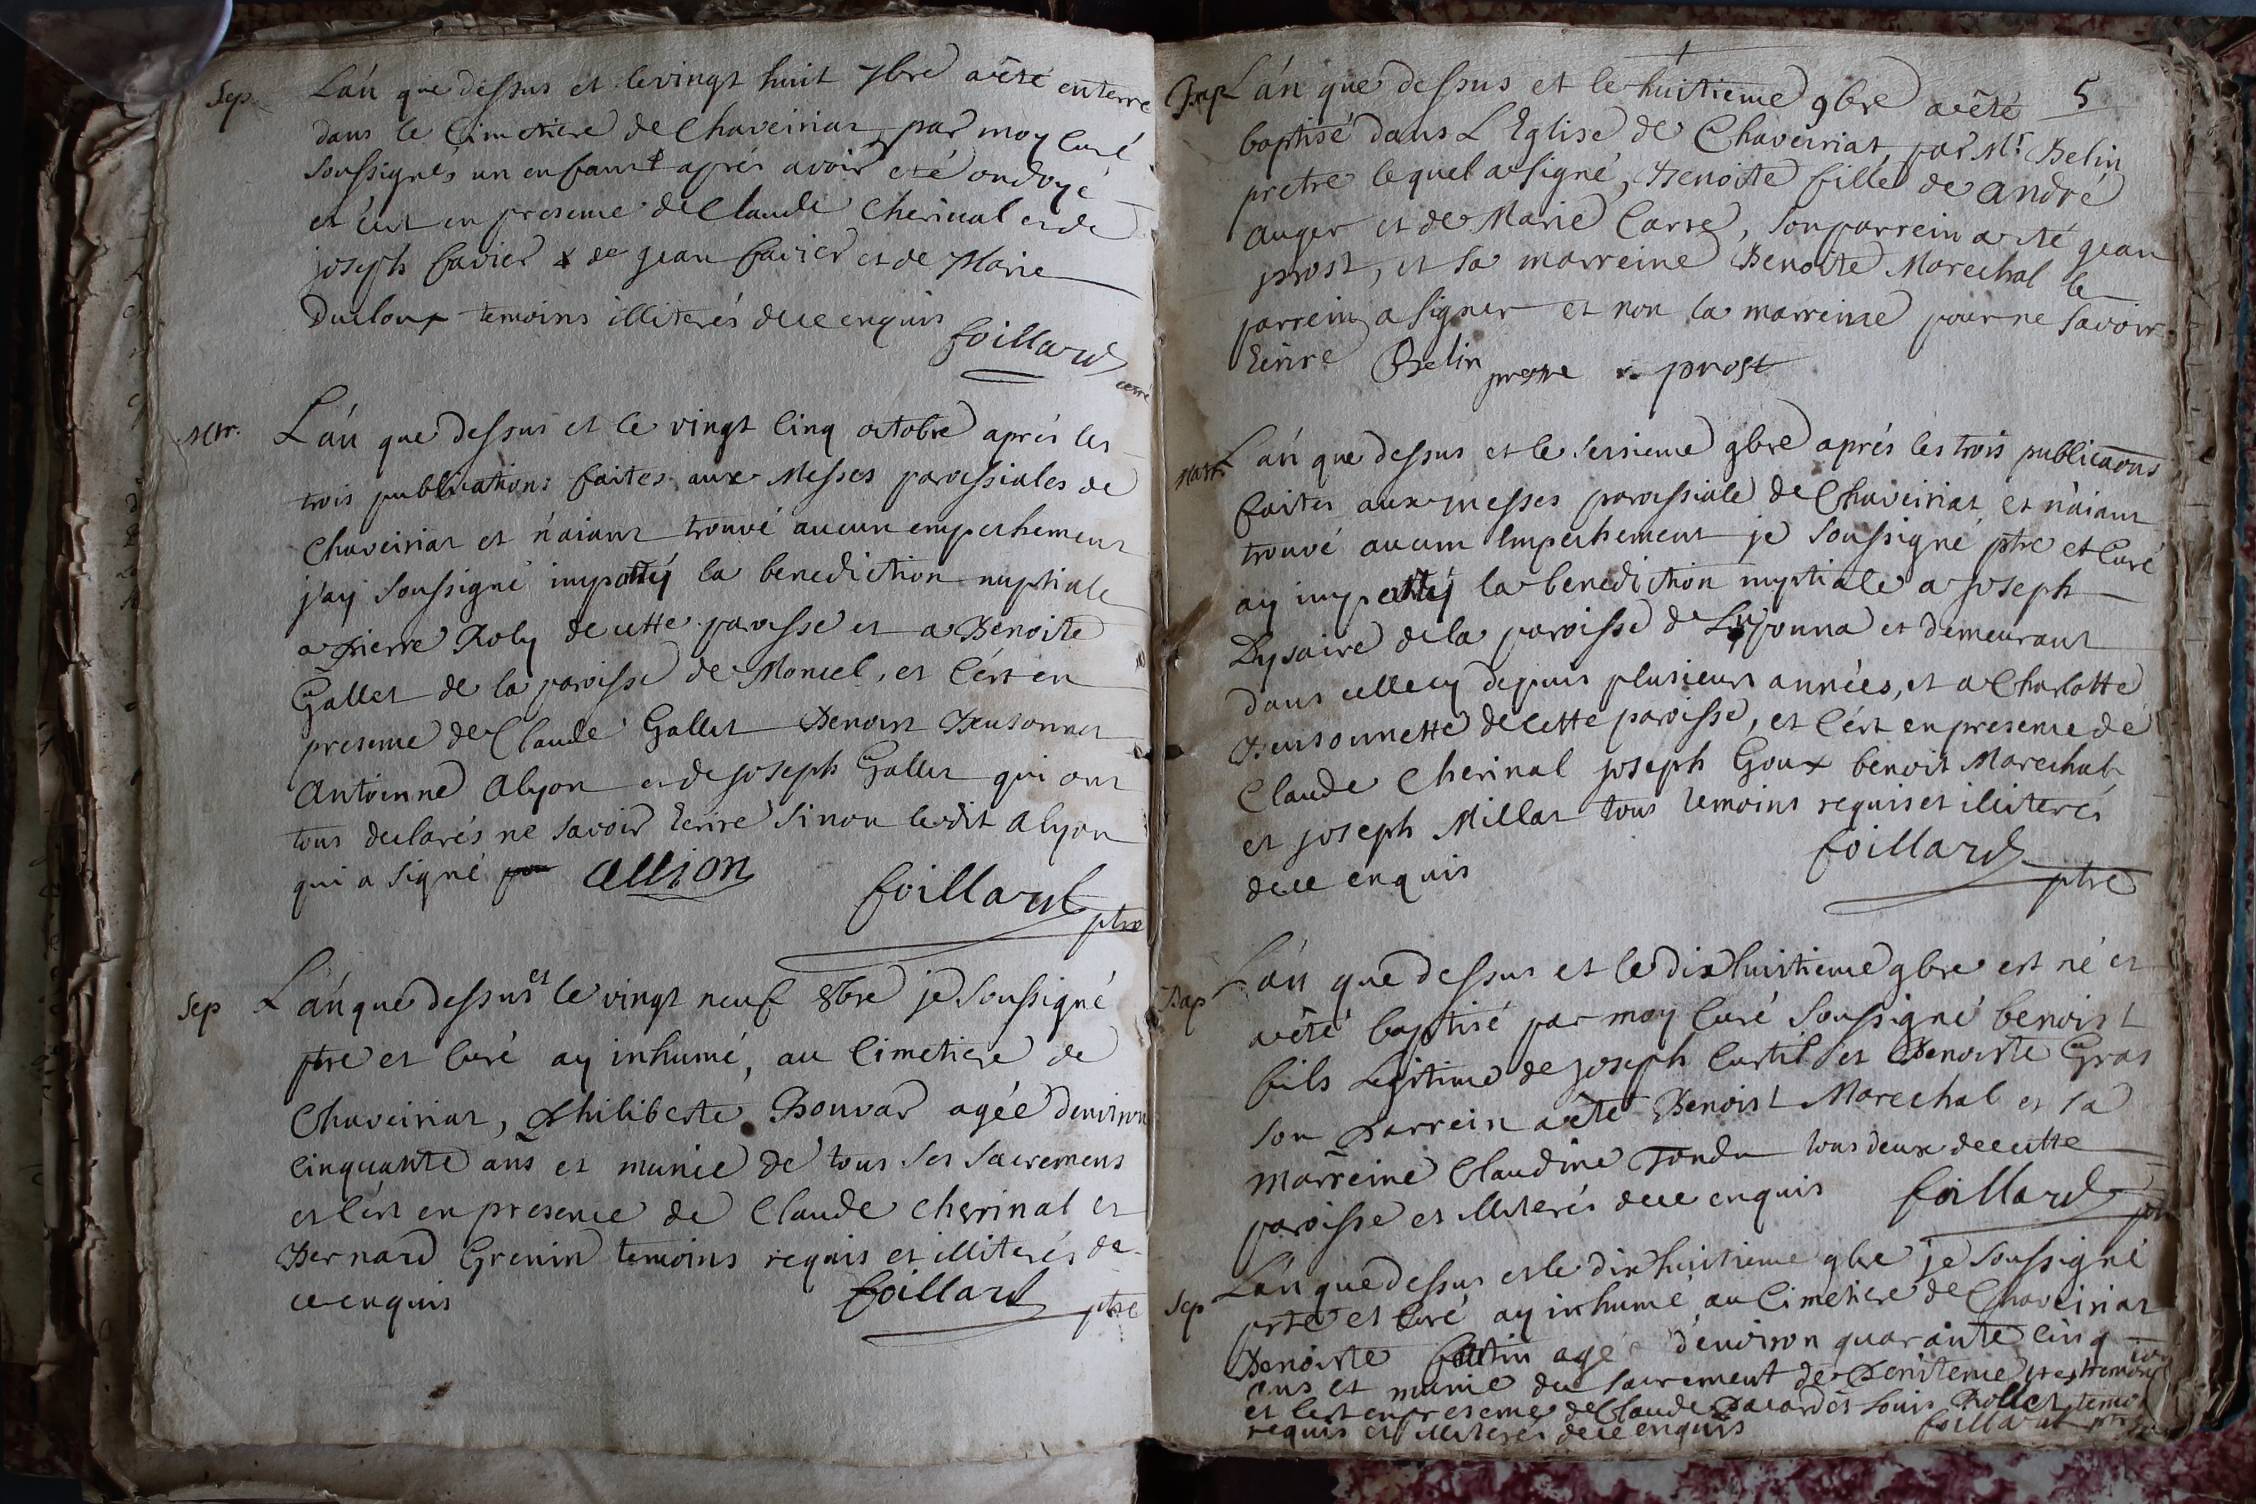 Sep. L'an que dessus et le vingt huit 7bre a êté enterré
dans le Cimetiere de Chaveiriat par moy Curé
soussignés un enfant aprés avoir eté ondoyé
et c'est en presence de Claude Cherinal et de
joseph favier & de jean favier et de Marie
Ducloux temoins illiterés de ce enquis
foillard curé
Mar. L'an que dessus et le vingt Cinq octobre aprés les
trois publications faites aux Messes paroissiales de
Chaveiriat et n'aiant trouvé aucun empechement
j'ay soussigné imparty la benediction nuptiale
a pierre Roly de cette paroisse et a Benoite
Gallet de la paroisse de Moncel, et C'est en
presence de Claude Gallet Benoist Beusonnet
Antoinne alyon et de joseph Gallet qui ont
tous declarés ne savoir Ecrire sinon ledit alyon
qui a signé allion
foillard ptre
Sep L'an que dessus et le vingt neuf 8bre je soussigné
ptre et Curé ay inhumé, au Cimetiere de
Chaveiriat, philiberte Bouvar agée d'environ
Cinquante ans et munie de tous ses sacremens
et C'est en presence de Claude cherinal et
Bernard Grenin temoins requis et illiterés de
ce enquis
foillard ptre
5
Bap L'an que dessus et le huitieme 9bre a êté
baptisé dans L'Eglise de Chaveiriat par Mr Belin
pretre lequel a signé, Benoite fille de andré
auger et de Marie Carre, son parrein a eté jean
prost, et sa marreine Benoite Marechal le
parrein a signer et non la marreine pour ne savoir
Ecrire Belin prestre prost
Mar. L'an que dessus et le sersieme 9bre aprés les trois publications
faites aux messes paroissiale de Chaveiriat et n'aiant
trouvé aucun Empechement je soussigné ptre et Curé
ay imparty la benediction nuptiale a joseph
Dysaire de la paroisse de et demeurant
dans cellecy depuis plusieurs années, et a Charlotte
Beusonnette de cette paroisse, et C'est en presence de
Claude Cherinal joseph Goux benoit Marechal
et joseph Millat tous temoins requis et illiterés
de ce enquis
foillard ptre
Bap L'an que dessus et le dix huitieme 9bre est né et
a êté baptisé par moy Curé soussigné benoist
fils Legitime de joseph Curtil et Benoiste Gras
son parrein a êté Benoist Marechal et sa
marreine Claudine Tondu tous deux de cette
paroisse et illiterés de ce enquis
foillard ptre
Sep L'an que dessus et le dix huitieme 9bre je soussigné
ptre et Curé ay inhumé au Cimetiere de Chaveiriat
Benoiste agée d'environ quarante Cinq
ans et munie du sacrement de penitence et extremonction
et C'est en presence de Claude pacard et Louis Rollet temoins
requis et illiterés de ce enquis foillard ptre